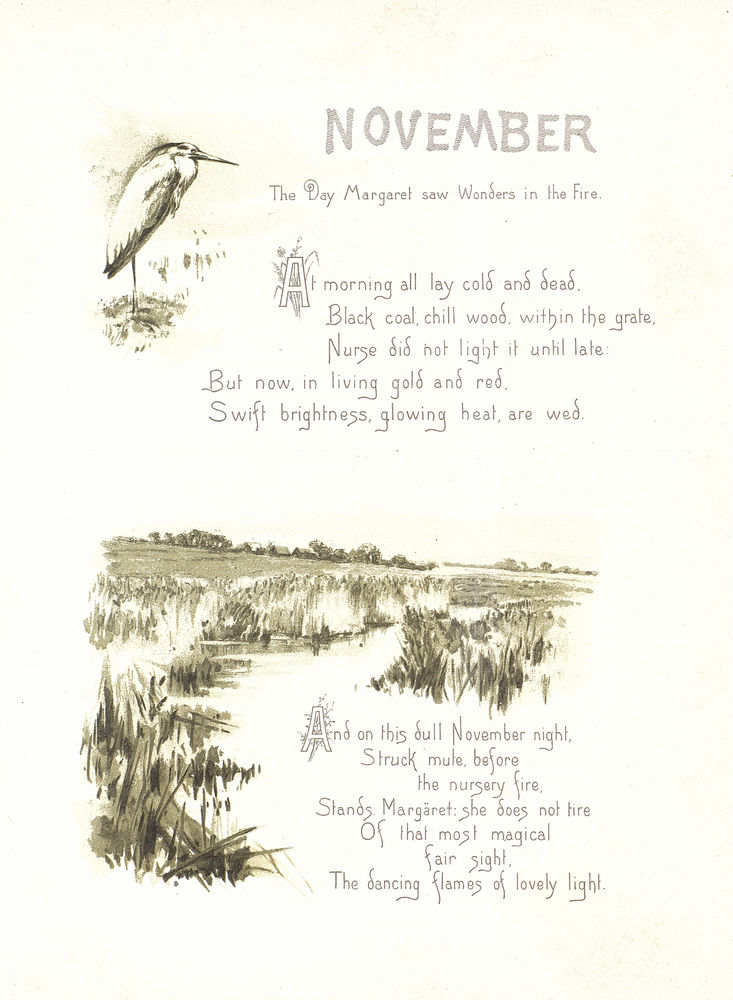 NOVEMBER
The Day Margaret saw Wonders in the Fire.
At morning all lay cold and dead,
Black coal, chill wood, within the grate,
Nurse did not light it until late:
But now, in living gold and red,
Swift brightness, glowing heat, are wed.
And on this dull November night,
Struck mute, before
the nursery fire,
Stands Margäret: she does not tire
Of that most magical
fair sight,
The dancing flames of lovely light.